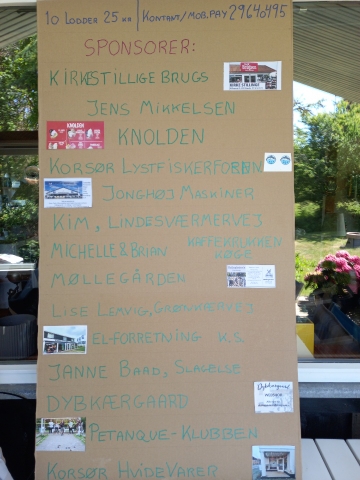 10 LODDER 25 KR | KONTANT/MOB.PAY 29640495
SPONSORER:
KIRKESTILLIGE BRUGS
JENS MIKKELSEN
KNOLDEN
KNOLDEN
KORSØR LYSTFISKERFORENIN
JONGHØJ MASKINER
KIM, LINDESVÆRMERVEJ
MICHELLE & BRIAN KAFFEKROKKEN
KØGE
MØLLEGÅRDEN
LISE LEMVIG, GRØNKÆRVEJ
EL-FORRETNING K.S.
JANNE BAAD, SLAGELSE
DYBKÆRGAARD
Dybkærgaard
PETANQUE-KLUBBEN
KORSØR HVIDEVARER